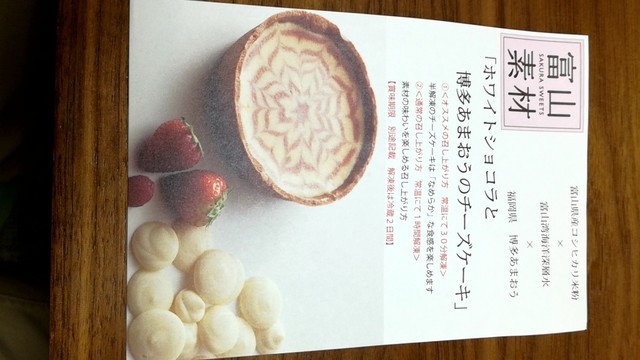 富山
素材
SAKURA SWEETS
富山県産コシヒカリ米粉
×
富山湾海洋深層水
×
福岡県　博多あまおう
「ホワイトショコラと
博多あまおうのチーズケーキ」
①<オススメの召し上がり方　常温にて３０分解凍>
半解凍のチーズケーキは「なめらか」な食感を楽しめます
②<通常の召し上がり方　常温にて１時間解凍>
素材の味わいを楽しめる召し上がり方
【賞味期限　別途記載　解凍後は冷蔵２日間】